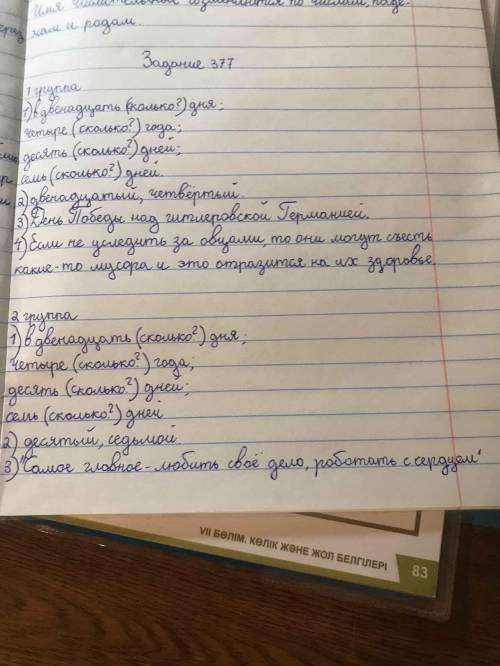 Имя числительное изменяется по числам, паде-
жам и родам.
Задание 377
1 группа
1) в двенадцать (сколько?) дня;
четыре (сколько?) года;
десять (сколько?) дней;
семь (сколько?) дней.
2) двенадцатый, четвёртый.
3) День Победы над гитлеровской Германией.
4) Если не уследить за овцами, то они могут съесть
какие-то мусора и это отразится на их здоровье.
2 группа
1) в двенадцать (сколько?) дня;
четыре (сколько?) года;
десять (сколько?) дней;
семь (сколько?) дней
2) десятый, седьмой.
3) "Самое главное - любить своё дело, роботать с сердцем"
VII БӨЛІМ. КӨЛІК ЖӘНЕ ЖОЛ БЕЛГІЛЕРІ
83